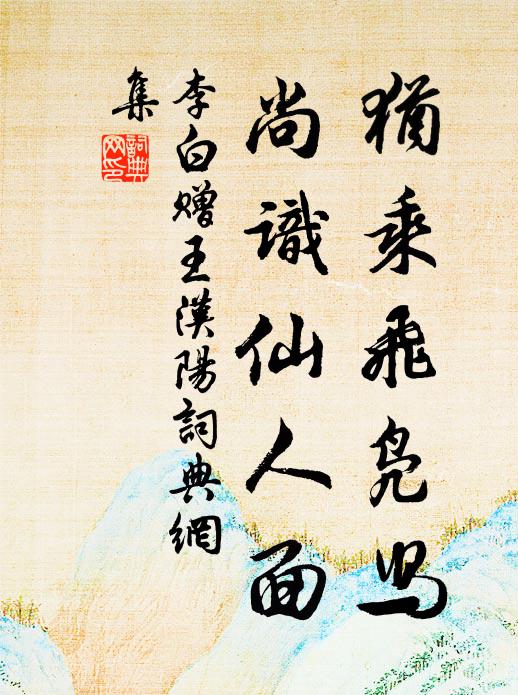 猶乘飛鳧舄
尚識仙人面
李白贈王漢陽詞典網
集
詞典網印